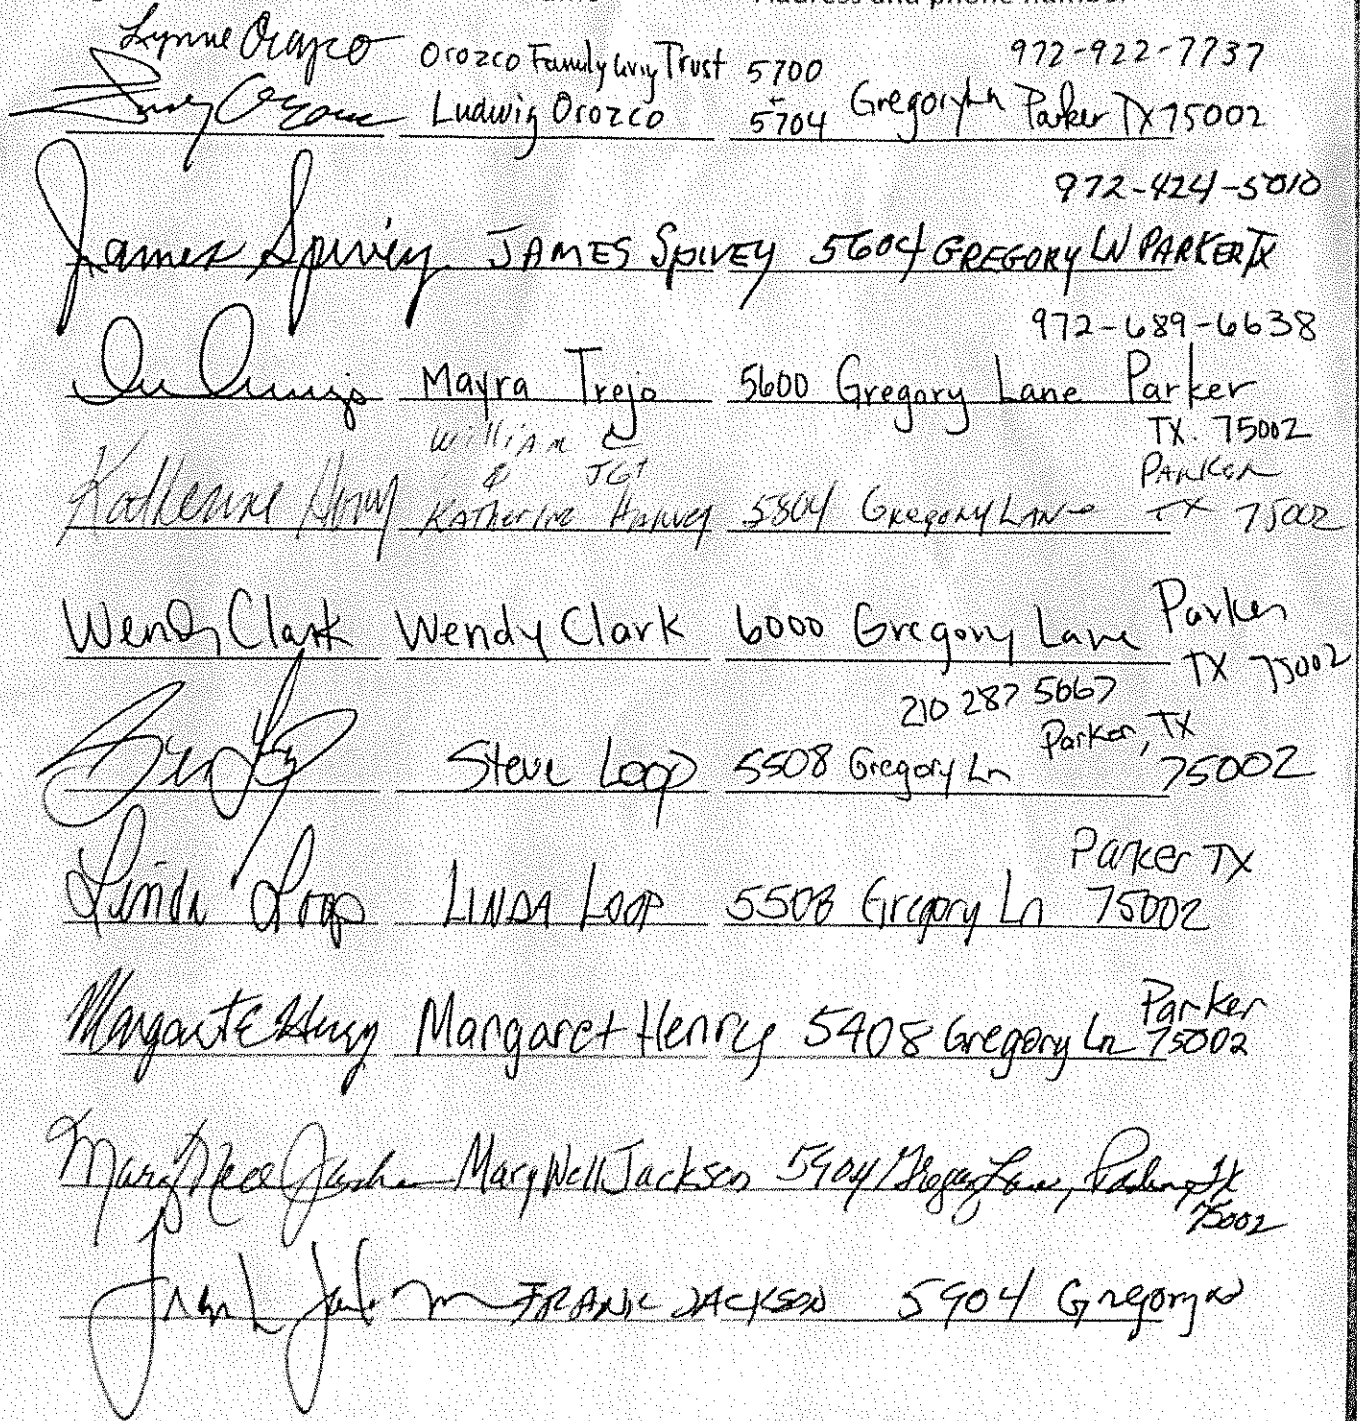 Address and phone number
Lynne Orozco Orozco Family Living Trust 5700 972-922-7737
Ludwig Orozco + 5704 Gregory Ln Parker TX 75002
972-424-5010
James Spivey JAMES SPIVEY 5604 GREGORY LN PARKER TX
972-689-6638
Mayra Trejo 5600 Gregory Lane Parker
TX. 75002
William &
PARKER
Katherine Katherine 5804 Gregory Lane TX 75002
Wendy Clark Wendy Clark 6000 Gregory Lane Parker
TX 75002
210 287 5667
Parker, TX
Steve Loop 5508 Gregory Ln 75002
Parker TX
Linda Loop LINDA LOOP 5508 Gregory Ln 75002
Parker
Margaret Henry Margaret Henry 5408 Gregory Ln 75002
Mary Jackson 5904 Gregory Lane, Parker, TX
75002
FRANK JACKSON 5904 Gregory